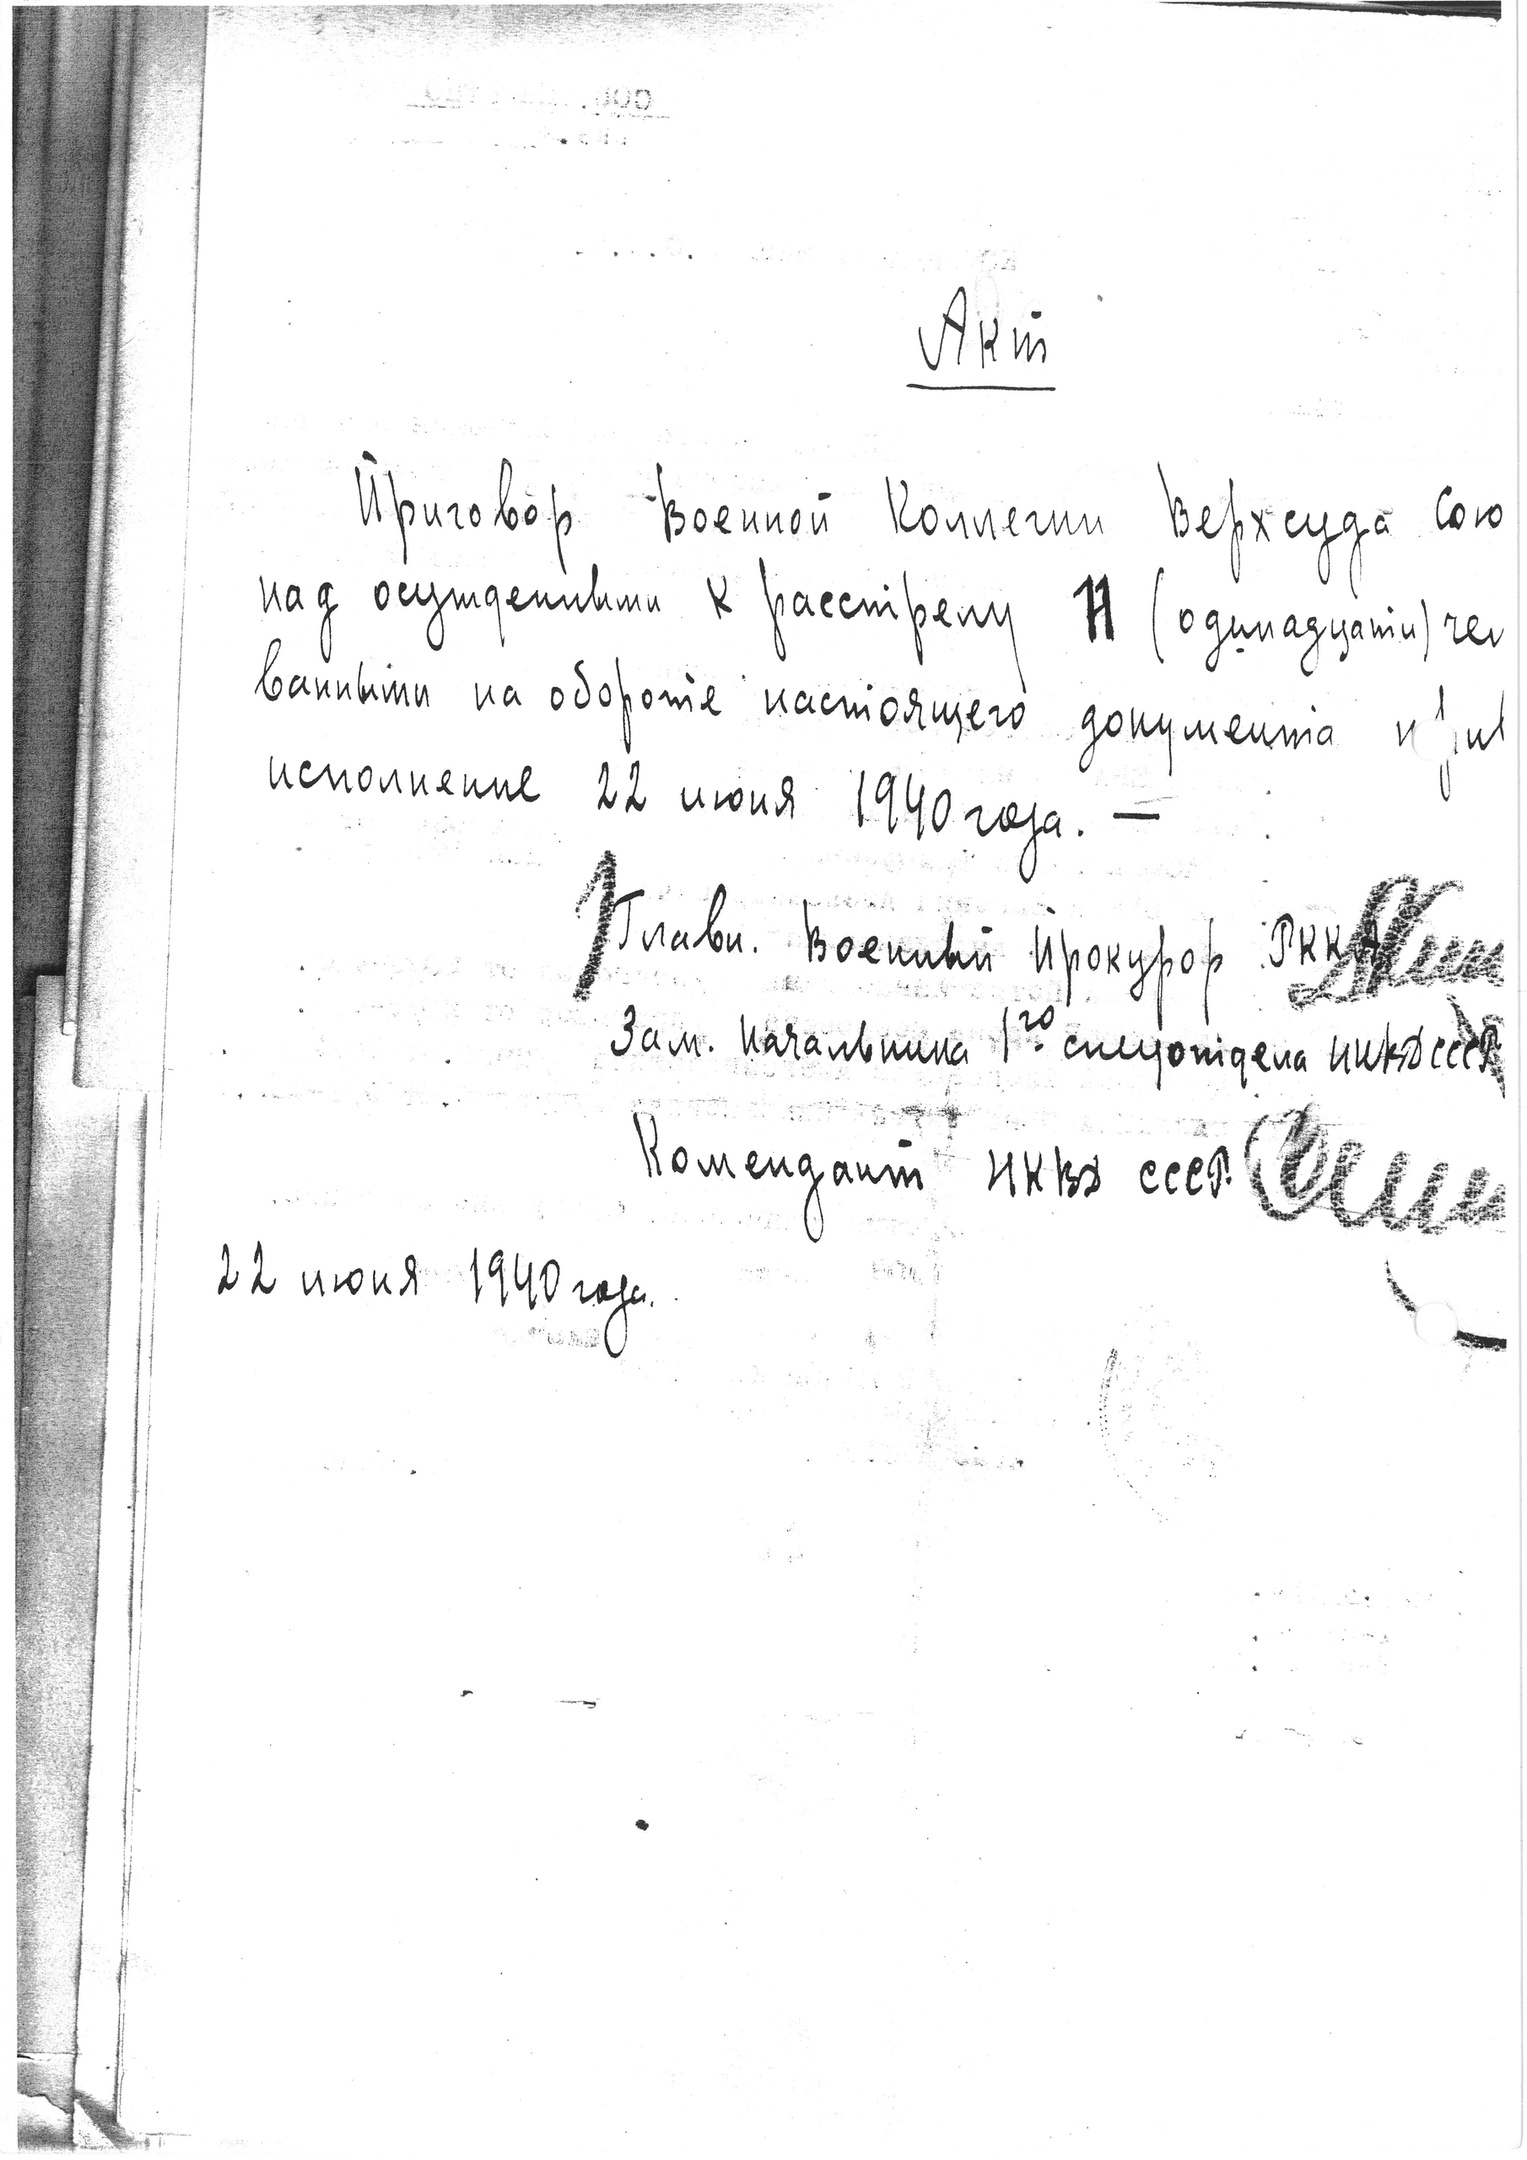 Акт
Приговор Военной Коллегии Верхсуда Сою
над осужденными к расстрелу 11 (одинадцати) чел
ванными на обороте настоящего документа
исполнение 22 июня 1940 года. —
Главн. Военный Прокурор РККА
Зам. Начальника 1го спецотдела НКВД СССР
Комендант НКВД СССР.
22 июня 1940 года.